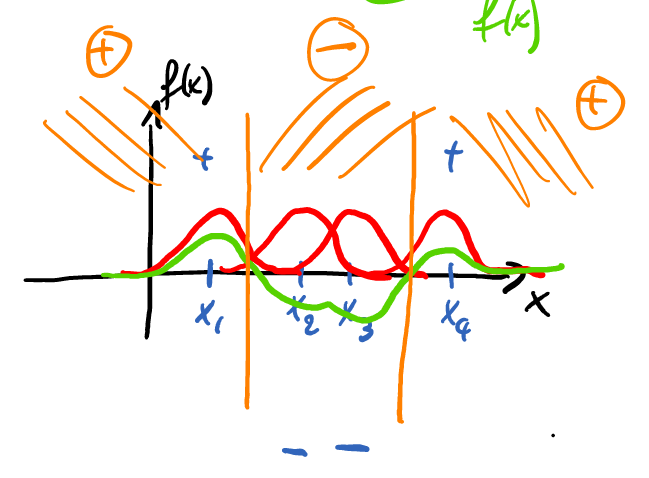 f(x)
+
−
f(x)
+
+
+
x₁
x₂
x₃
x₄
x
− −